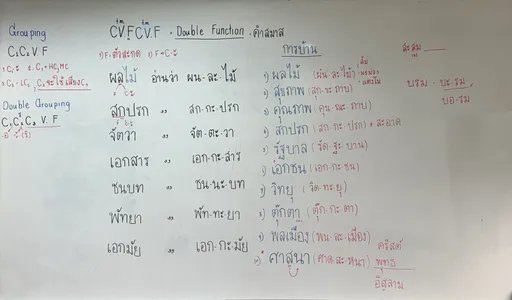 Grouping
C₁C₂V F
Double Grouping
CVFCVF • Double Function • คำสมาส
1) F: ตัวสะกด 2) F = C-ะ
ผลไม้ อ่านว่า ผน-ละ-ไม้
สกปรก " สก-กะ-ปรก
จัตวา " จัต-ตะ-วา
เอกสาร " เอก-กะ-สาร
ชนบท " ชน-นะ-บท
พัทยา " พัท-ทะ-ยา
เอกมัย " เอก-กะ-มัย
การบ้าน
1) ผลไม้ (ผน-ละ-ไม้)
2) สุขภาพ (สุก-ขะ-ภาบ)
3) คุณภาพ (คุน-นะ-ภาบ)
4) สกปรก (สก-กะ-ปรก) สะอาด
5) รัฐบาล (รัด-ฐะ-บาน)
6) เอกชน (เอก-กะ-ชน)
7) วิทยุ (วิด-ทะ-ยุ)
8) ตุ๊กตา (ตุ๊ก-กะ-ตา)
9) พลเมือง (พน-ละ-เมือง)
10) ศาสนา (ศาด-สะ-หนา)
คริสต์
พุทธ
อิสลาม
สะสม
บรม . บะ-รม
บอ-รม